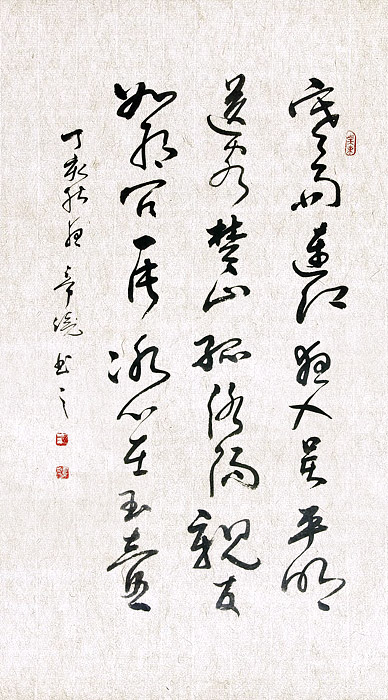 寒雨連江夜入吴平明
送客楚山孤洛陽親友
如相问一片冰心在玉壺
丁亥秋 书之